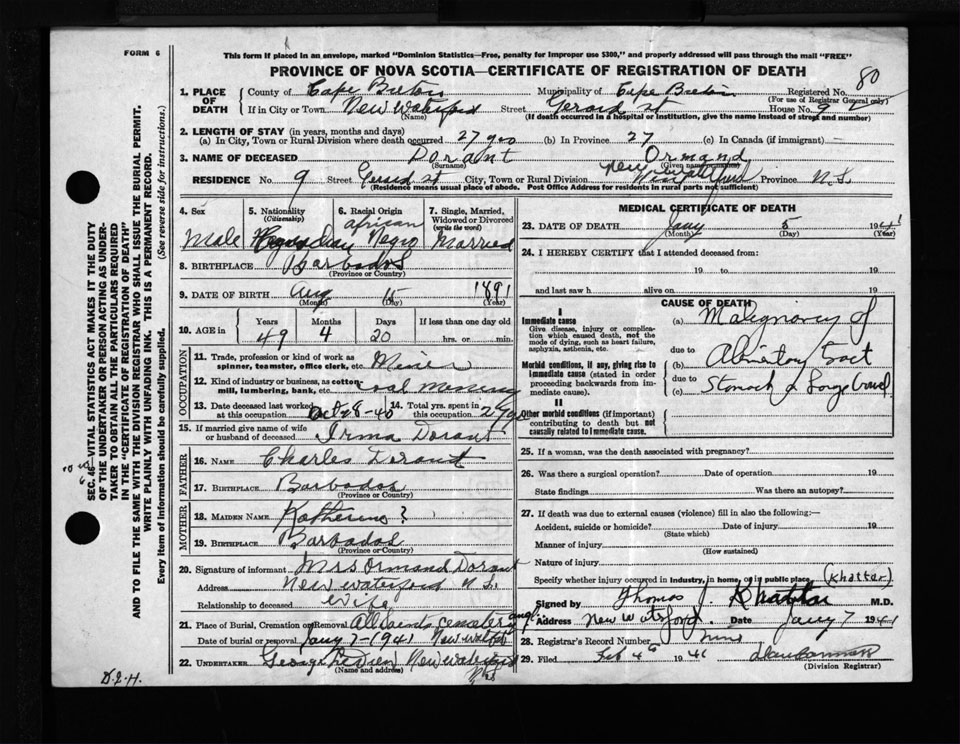 FORM 6
This form if placed in an envelope, marked "Dominion Statistics—Free, penalty for improper use $300," and properly addressed will pass through the mail "FREE"
PROVINCE OF NOVA SCOTIA—CERTIFICATE OF REGISTRATION OF DEATH
80
1. PLACE OF DEATH
County of Cape Breton Municipality of Cape Breton Registered No.
(For use of Registrar General only)
If in City or Town New Waterford Street Gerard St House No. 9
(Name) (If death occurred in a hospital or institution, give the name instead of street and number)
2. LENGTH OF STAY (in years, months and days)
(a) In City, Town or Rural Division where death occurred 27 yrs (b) In Province 27 (c) In Canada (if immigrant)
3. NAME OF DECEASED Dorant Ormand
(Surname) (Given names)
RESIDENCE No. 9 Street Gerard St City, Town or Rural Division New Waterford Province N.S.
(Residence means usual place of abode. Post Office Address for residents in rural parts not sufficient)
4. Sex
5. Nationality
(Citizenship)
6. Racial Origin
7. Single, Married, Widowed or Divorced
(write the word)
Male African Negro Married
8. BIRTHPLACE Barbados
(Province or Country)
9. DATE OF BIRTH Aug 15 1891
(Month) (Day) (Year)
10. AGE in
Years Months Days If less than one day old
49 4 20 hrs. or min.
OCCUPATION
11. Trade, profession or kind of work as spinner, teamster, office clerk, etc. Miner
12. Kind of industry or business, as cotton-mill, lumbering, bank, etc. Coal Mining
13. Date deceased last worked at this occupation Oct-28-40
14. Total yrs. spent in this occupation
15. If married give name of wife or husband of deceased Irma Dorant
FATHER
16. NAME Charles Dorant
17. BIRTHPLACE Barbados
(Province or Country)
MOTHER
18. MAIDEN NAME Katherine ?
19. BIRTHPLACE Barbados
(Province or Country)
20. Signature of informant Mrs Ormand Dorant
Address New Waterford N.S.
Relationship to deceased Wife
21. Place of Burial, Cremation or Removal All Saints Cemetery ang
Date of burial or removal Jany 7-1941 New Waterford
22. UNDERTAKER George New Waterford
(Name and address) N.S.
MEDICAL CERTIFICATE OF DEATH
23. DATE OF DEATH Jany 5 1941
(Month) (Day) (Year)
24. I HEREBY CERTIFY that I attended deceased from:
19 to 19
and last saw h alive on 19
CAUSE OF DEATH
I
Immediate cause
Give disease, injury or complication which caused death, not the mode of dying, such as heart failure, asphyxia, asthenia, etc.
(a) Malignancy of
due to
Morbid conditions, if any, giving rise to immediate cause (stated in order proceeding backwards from immediate cause).
(b) Alimentary Tract
due to
(c) Stomach & Large bowel
II
Other morbid conditions (if important) contributing to death but not causally related to immediate cause.
25. If a woman, was the death associated with pregnancy?
26. Was there a surgical operation? Date of operation 19
State findings Was there an autopsy?
27. If death was due to external causes (violence) fill in also the following:—
Accident, suicide or homicide? Date of injury 19
(State which)
Manner of injury
(How sustained)
Nature of injury
Specify whether injury occurred in industry, in home, or in public place (Khatter)
Signed by Thomas J Khattar M.D.
Address New Waterford. Date Jany 7 1941
28. Registrar's Record Number nine
29. Filed Feb 4th 1941
(Division Registrar)
SEC. 46—VITAL STATISTICS ACT MAKES IT THE DUTY OF THE UNDERTAKER OR PERSON ACTING AS UNDERTAKER TO OBTAIN ALL THE PARTICULARS REQUIRED IN THE "CERTIFICATE OF REGISTRATION OF DEATH" AND TO FILE THE SAME WITH THE DIVISION REGISTRAR WHO SHALL ISSUE THE BURIAL PERMIT.
WRITE PLAINLY WITH UNFADING INK. THIS IS A PERMANENT RECORD.
Every item of information should be carefully supplied. (See reverse side for instructions.)
D.L.H.